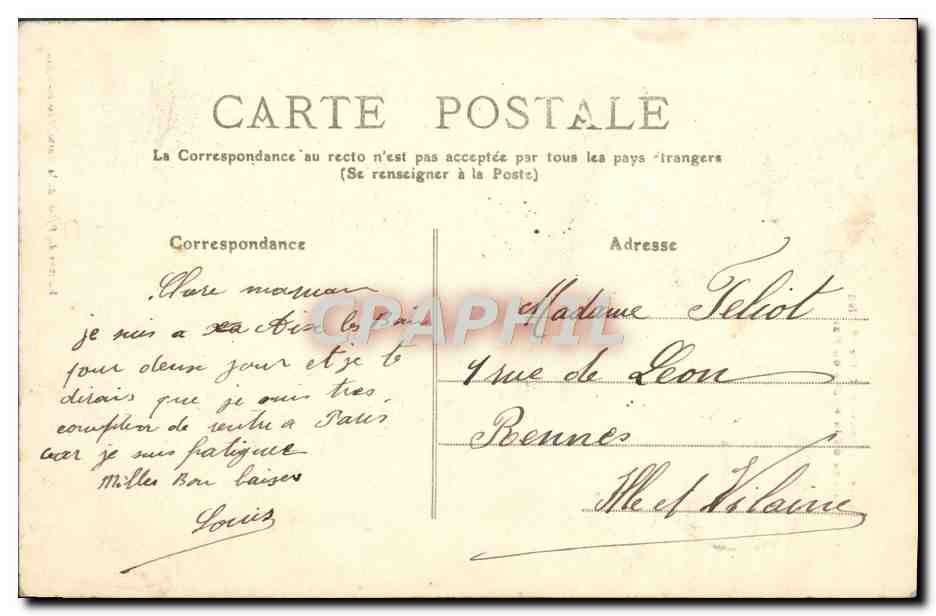 CARTE POSTALE
La Correspondance au recto n'est pas acceptée par tous les pays étrangers
(Se renseigner à la Poste)
Correspondance
Adresse
Chere maman
je suis a Aix les Bain
pour deux jour et je te
dirais que je suis tres
de rentre a Paris
car je suis fatiguee
Milles Bon baiser
Louis
Madame Feliot
1 rue de Leon
Rennes
Ille et Vilaine
CPAPHIL